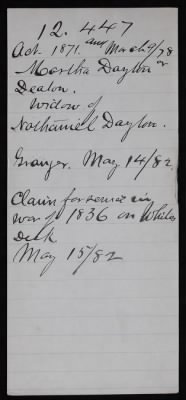 12.447
Act. 1871. am March 9/78
Martha Dayton or
Deaton.
Widow of
Nathaniel Dayton.
Granger. May 14/82
Claim for service in
war of 1836 on
Deck
May 15/82